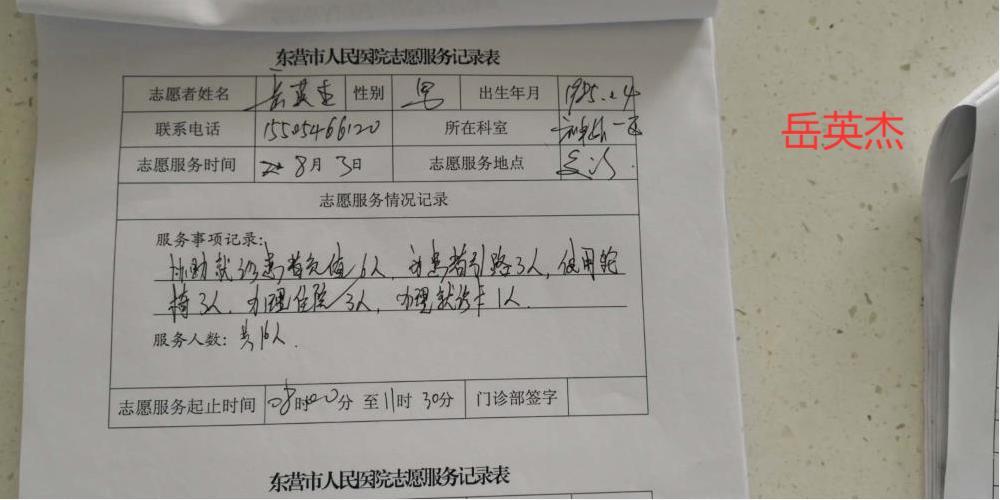 东营市人民医院志愿服务记录表
志愿者姓名 岳英杰 性别 男 出生年月 1985.
联系电话 15505466120 所在科室
志愿服务时间 8月3日 志愿服务地点
志愿服务情况记录
服务事项记录:
协助就诊患者充值6人, 为患者引路3人, 使用轮
椅3人, 办理住院3人, 办理就诊卡1人.
服务人数: 共16人.
志愿服务起止时间 08时00分 至11时30分 门诊部签字
东营市人民医院志愿服务记录表
岳英杰